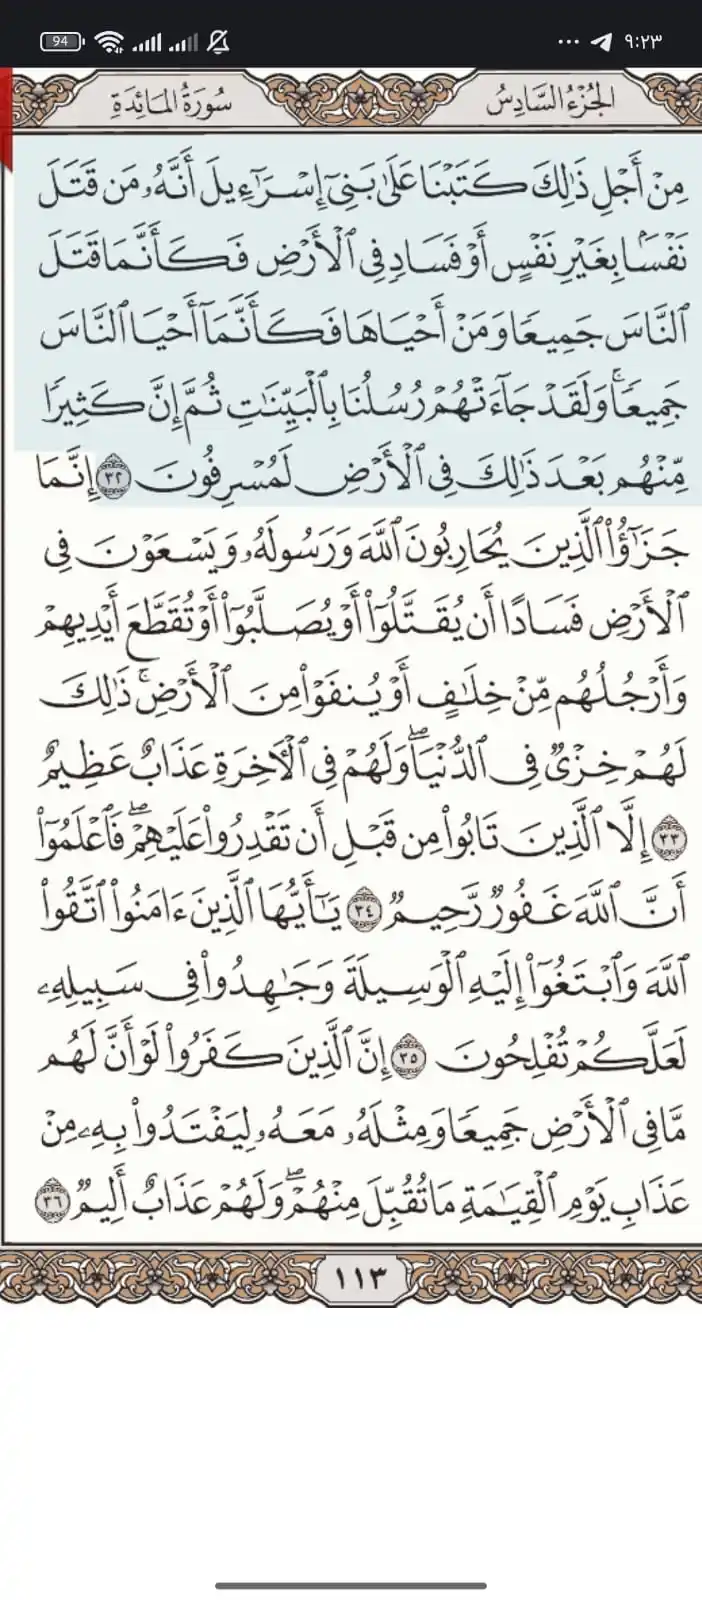 94 ... ٩:٢٣
سُورَةُ المَائِدَةِ الجُزْءُ السَّادِسُ
مِنْ أَجْلِ ذَٰلِكَ كَتَبْنَا عَلَىٰ بَنِىٓ إِسْرَٰٓءِيلَ أَنَّهُۥ مَن قَتَلَ
نَفْسًۢا بِغَيْرِ نَفْسٍ أَوْ فَسَادٍ فِى ٱلْأَرْضِ فَكَأَنَّمَا قَتَلَ
ٱلنَّاسَ جَمِيعًا وَمَنْ أَحْيَاهَا فَكَأَنَّمَآ أَحْيَا ٱلنَّاسَ
جَمِيعًا ۚ وَلَقَدْ جَآءَتْهُمْ رُسُلُنَا بِٱلْبَيِّنَٰتِ ثُمَّ إِنَّ كَثِيرًا
مِّنْهُم بَعْدَ ذَٰلِكَ فِى ٱلْأَرْضِ لَمُسْرِفُونَ ٣٢ إِنَّمَا
جَزَٰٓؤُا۟ ٱلَّذِينَ يُحَارِبُونَ ٱللَّهَ وَرَسُولَهُۥ وَيَسْعَوْنَ فِى
ٱلْأَرْضِ فَسَادًا أَن يُقَتَّلُوٓا۟ أَوْ يُصَلَّبُوٓا۟ أَوْ تُقَطَّعَ أَيْدِيهِمْ
وَأَرْجُلُهُم مِّنْ خِلَٰفٍ أَوْ يُنفَوْا۟ مِنَ ٱلْأَرْضِ ۚ ذَٰلِكَ
لَهُمْ خِزْىٌ فِى ٱلدُّنْيَا ۖ وَلَهُمْ فِى ٱلْءَاخِرَةِ عَذَابٌ عَظِيمٌ
٣٣ إِلَّا ٱلَّذِينَ تَابُوا۟ مِن قَبْلِ أَن تَقْدِرُوا۟ عَلَيْهِمْ ۖ فَٱعْلَمُوٓا۟
أَنَّ ٱللَّهَ غَفُورٌ رَّحِيمٌ ٣٤ يَٰٓأَيُّهَا ٱلَّذِينَ ءَامَنُوا۟ ٱتَّقُوا۟
ٱللَّهَ وَٱبْتَغُوٓا۟ إِلَيْهِ ٱلْوَسِيلَةَ وَجَٰهِدُوا۟ فِى سَبِيلِهِۦ
لَعَلَّكُمْ تُفْلِحُونَ ٣٥ إِنَّ ٱلَّذِينَ كَفَرُوا۟ لَوْ أَنَّ لَهُم
مَّا فِى ٱلْأَرْضِ جَمِيعًا وَمِثْلَهُۥ مَعَهُۥ لِيَفْتَدُوا۟ بِهِۦ مِنْ
عَذَابِ يَوْمِ ٱلْقِيَٰمَةِ مَا تُقُبِّلَ مِنْهُمْ ۖ وَلَهُمْ عَذَابٌ أَلِيمٌ ٣٦
١١٣